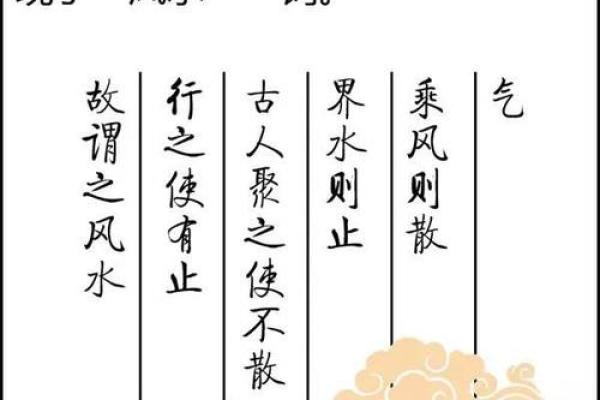 气
乘风则散
界水则止
古人聚之使不散
行之使有止
故谓之风水